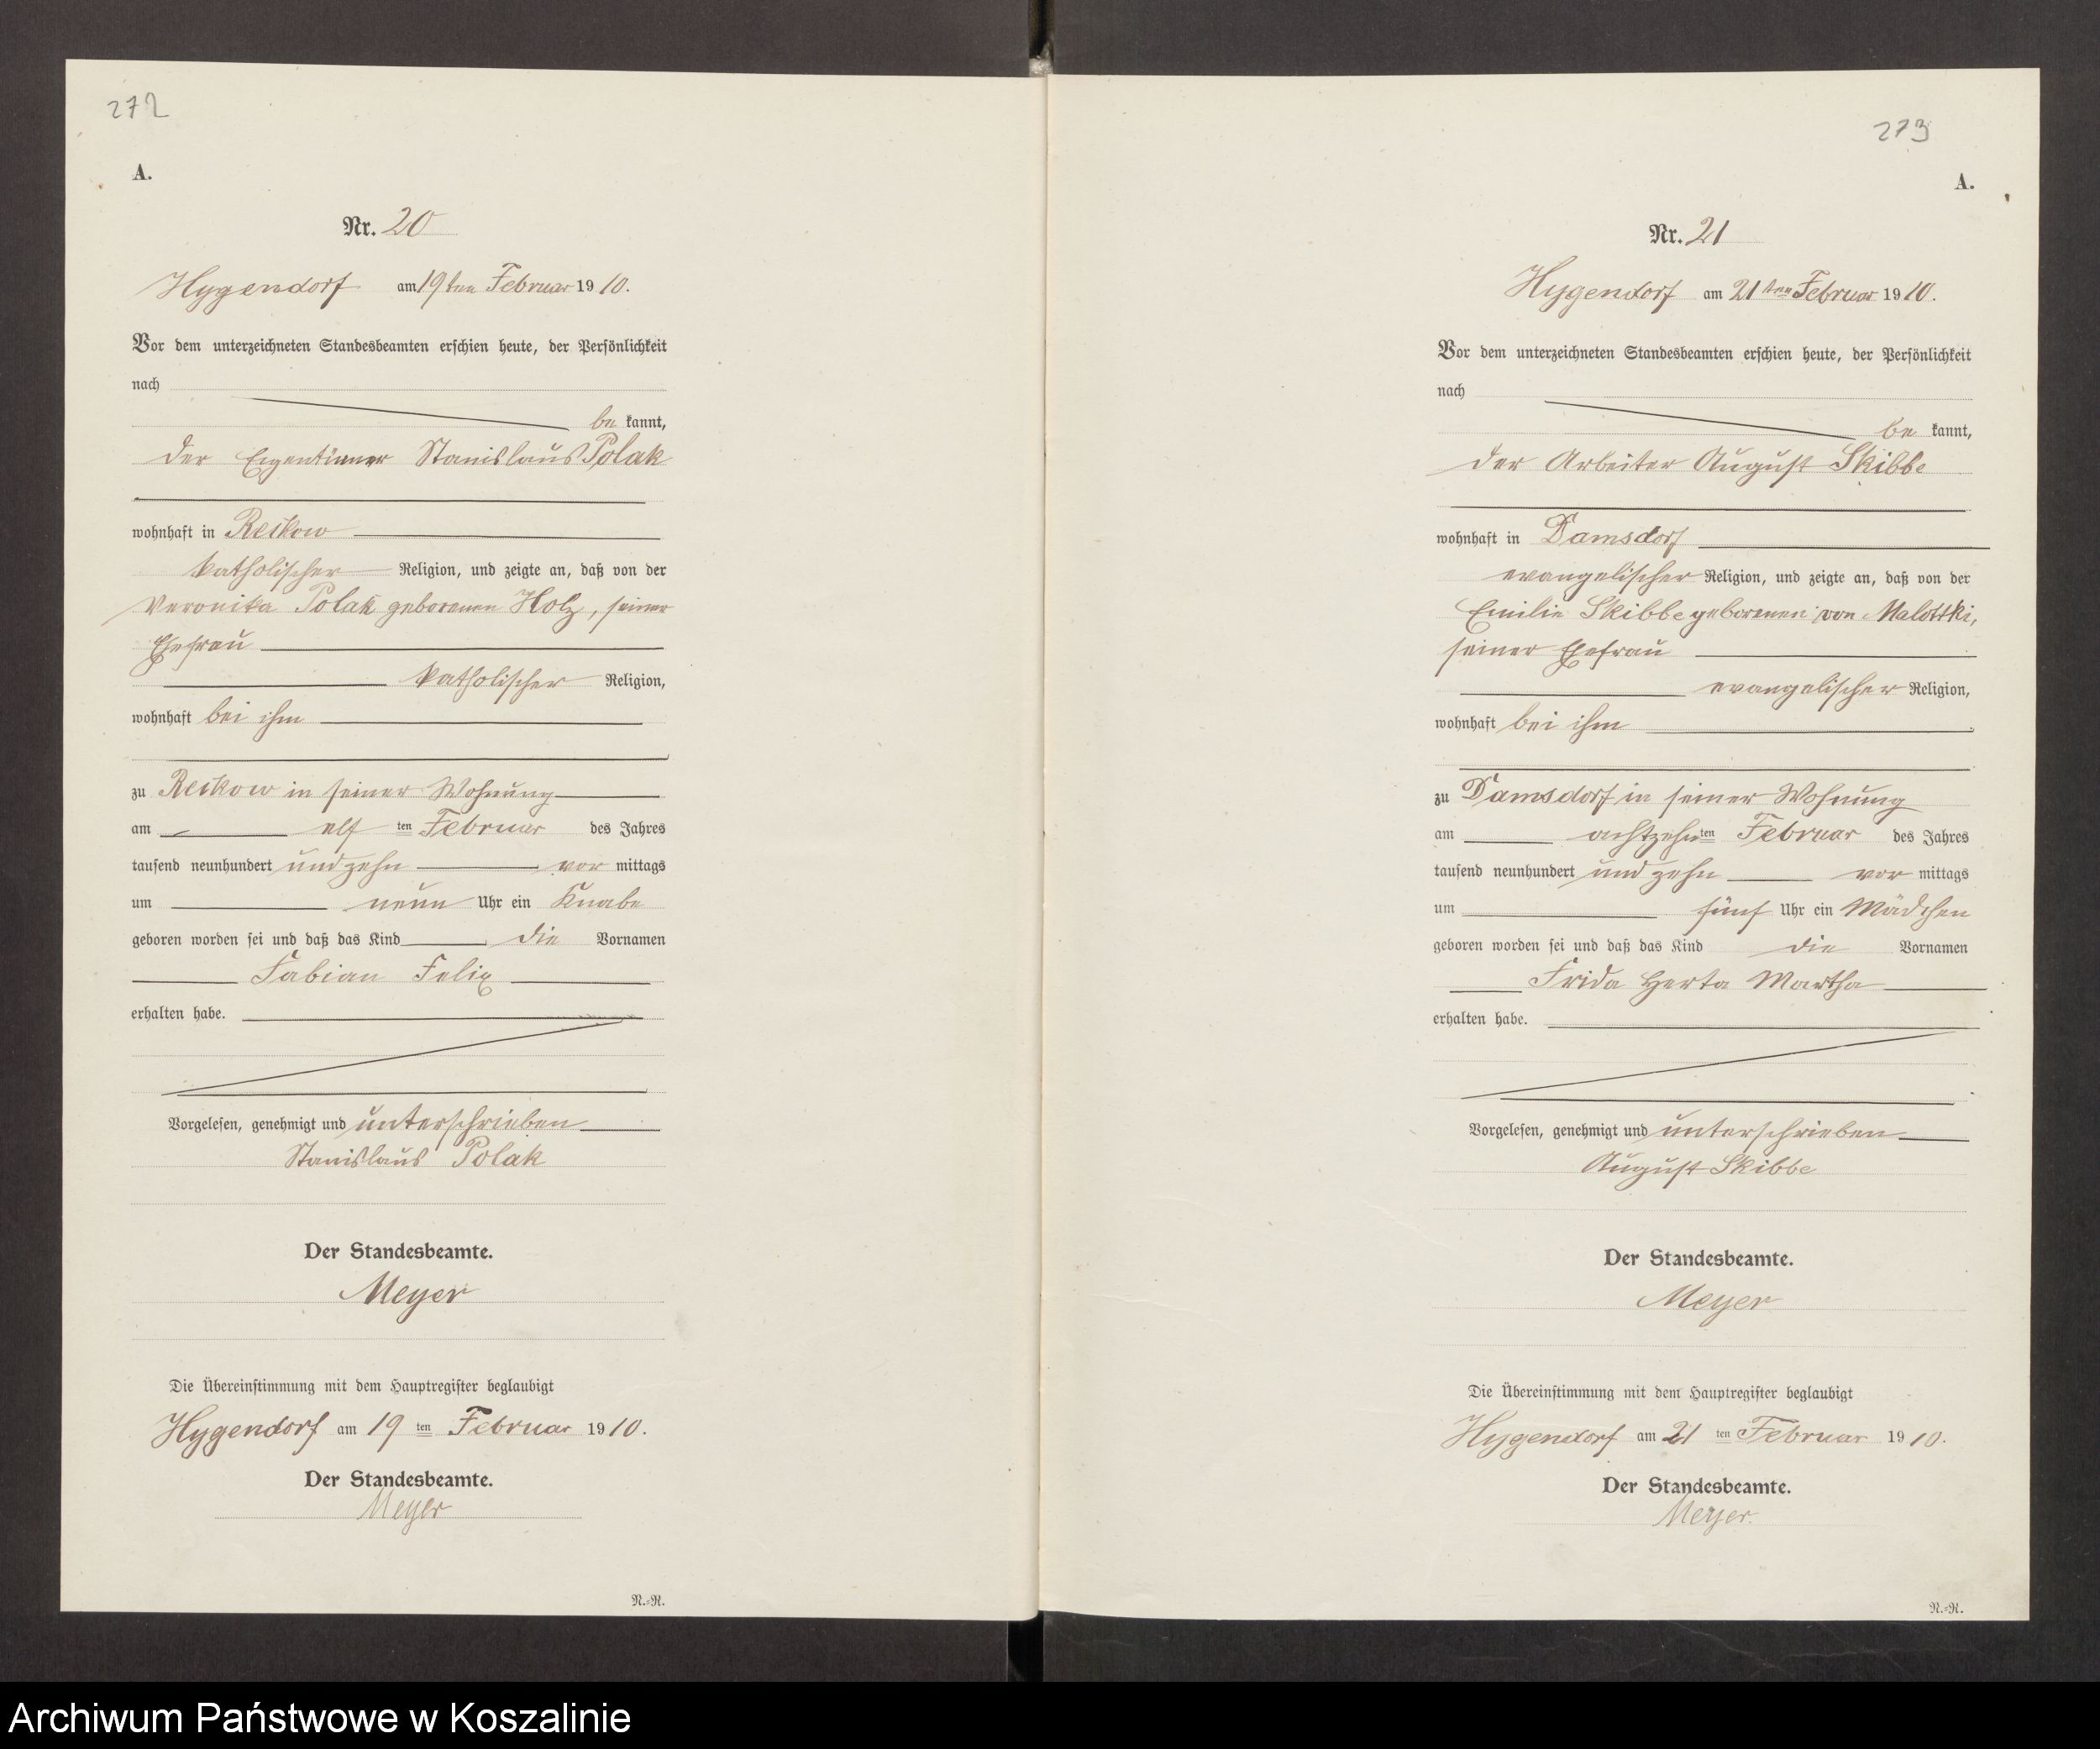 272
A.
Nr. 20
Hygendorf am 19ten Februar 1910.
Vor dem unterzeichneten Standesbeamten erschien heute, der Persönlichkeit
nach
be kannt,
der Eigentümer Stanislaus Polak
wohnhaft in Reckow
katholischer Religion, und zeigte an, daß von der
Veronika Polak geborenen Holz, seiner
Ehefrau
katholischer Religion,
wohnhaft bei ihm
zu Reckow in seiner Wohnung
am elf ten Februar des Jahres
tausend neunhundert und zehn vor mittags
um neun Uhr ein Knabe
geboren worden sei und daß das Kind die Vornamen
Fabian Felix
erhalten habe.
Vorgelesen, genehmigt und unterschrieben
Stanislaus Polak
Der Standesbeamte.
Meyer
Die Übereinstimmung mit dem Hauptregister beglaubigt
Hygendorf am 19 ten Februar 1910.
Der Standesbeamte.
Meyer
N.=N.
273
A.
Nr. 21
Hygendorf am 21ten Februar 1910.
Vor dem unterzeichneten Standesbeamten erschien heute, der Persönlichkeit
nach
be kannt,
der Arbeiter August Skibbe
wohnhaft in Damsdorf
evangelischer Religion, und zeigte an, daß von der
Emilie Skibbe geborenen von Malottki,
seiner Ehefrau
evangelischer Religion,
wohnhaft bei ihm
zu Damsdorf in seiner Wohnung
am achtzehn ten Februar des Jahres
tausend neunhundert und zehn vor mittags
um fünf Uhr ein Mädchen
geboren worden sei und daß das Kind die Vornamen
Frida Herta Martha
erhalten habe.
Vorgelesen, genehmigt und unterschrieben
August Skibbe
Der Standesbeamte.
Meyer
Die Übereinstimmung mit dem Hauptregister beglaubigt
Hygendorf am 21 ten Februar 1910.
Der Standesbeamte.
Meyer.
N.=N.
Archiwum Państwowe w Koszalinie